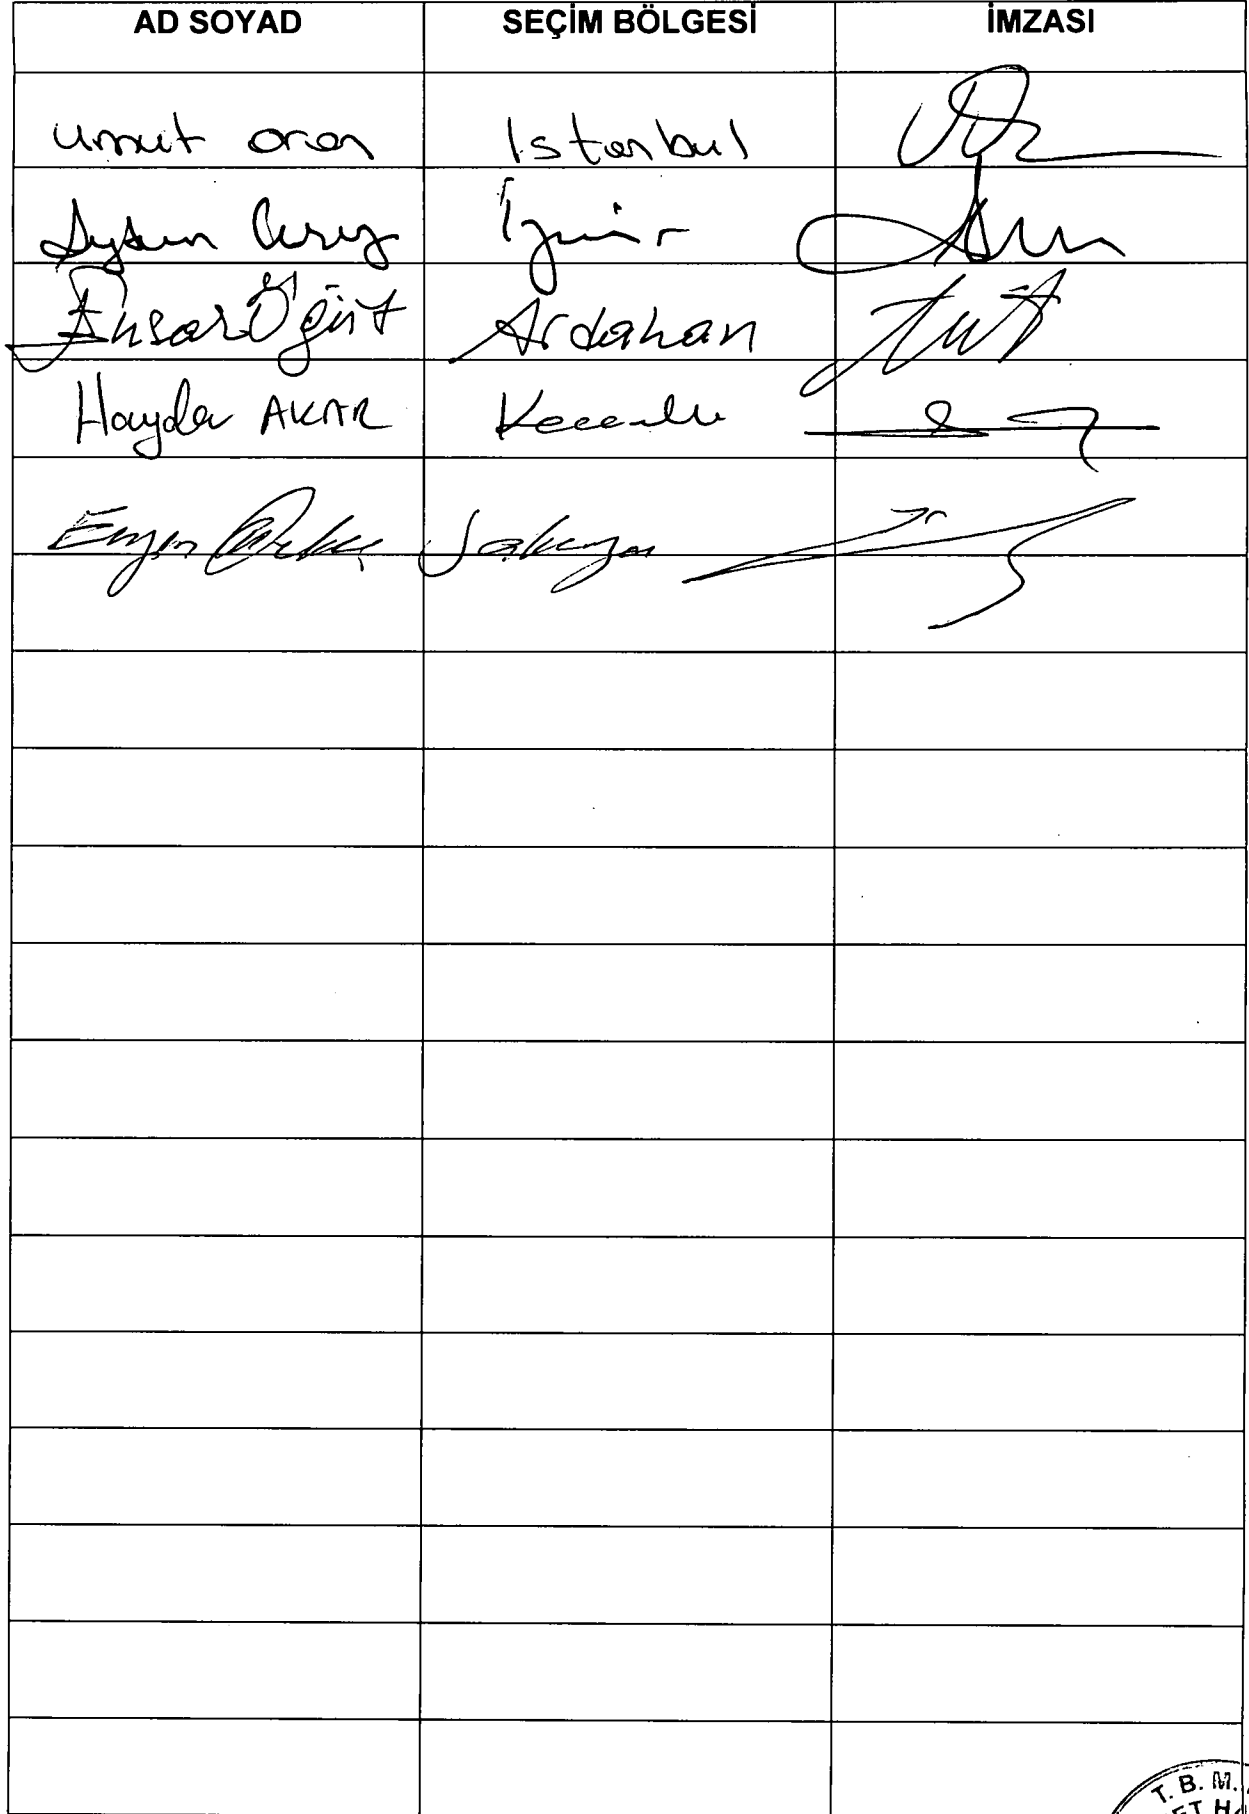 AD SOYAD SEÇİM BÖLGESİ İMZASI
Umut Oran Istanbul
İzmir
Ensar Öğüt Ardahan
Haydar AKAR Kocaeli
Engin Sakarya
T. B. M.